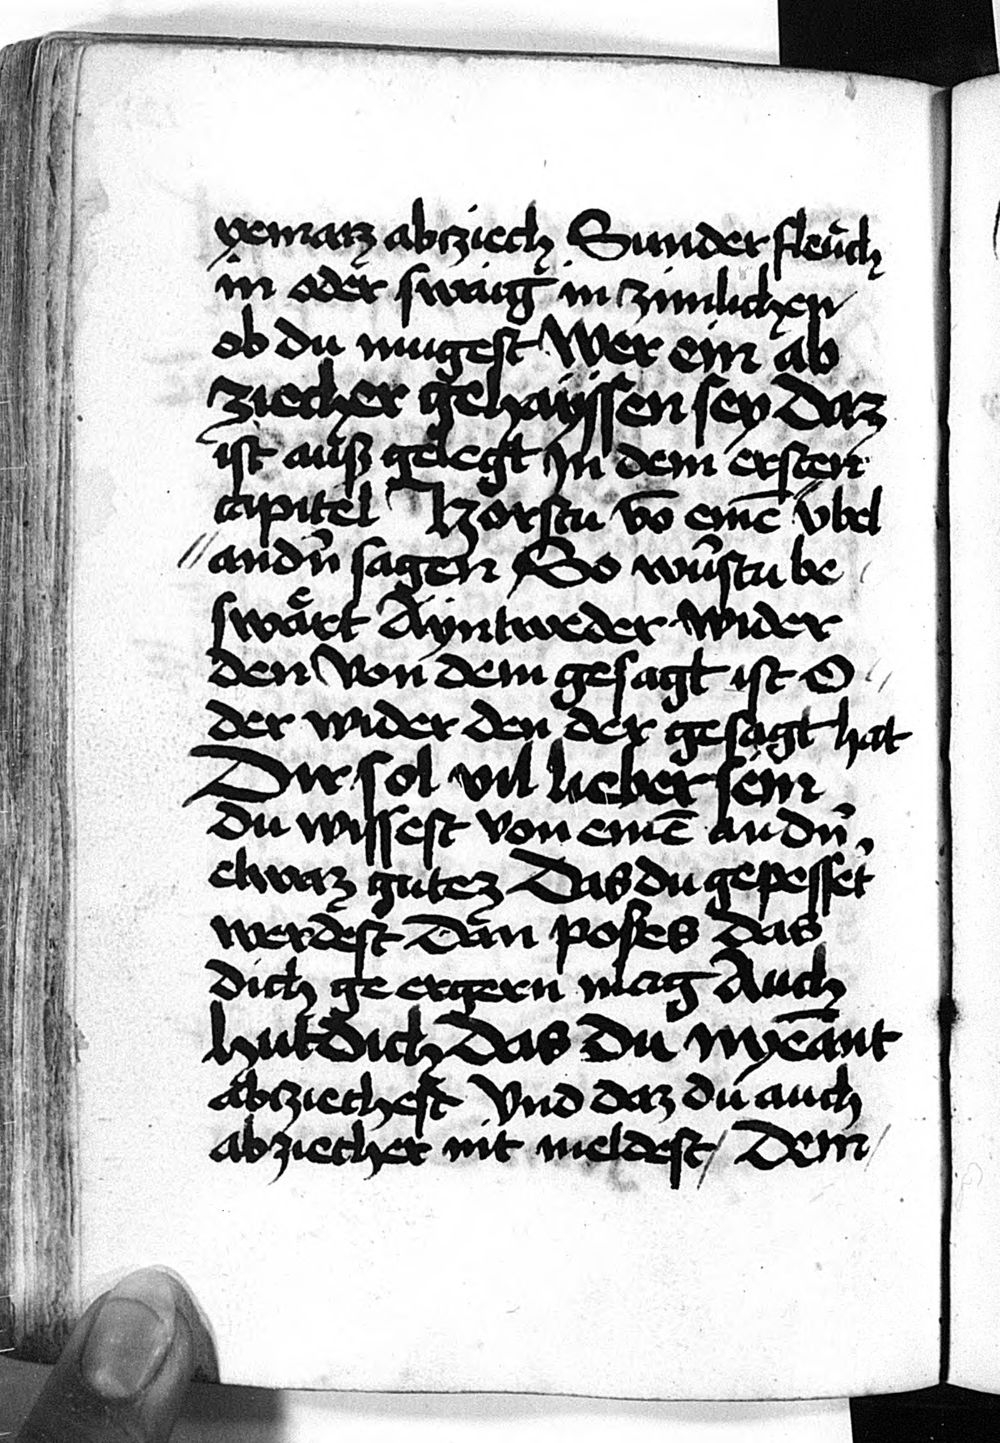 yematz abcziech Sunder fleuch
in oder swaig in zimlichen
ob du mugest Wer ein ab
ziecher gehayssen sey Daz
ist auß gelegt Jn dem ersten
capitel Horstu vo͞ eine͞ vbel
andn̄ sagen So wirstu be
swärt Ayntweder wider
den von dem gesagt ist O
der wider den der gesagt hat
Dir sol vil lieber sein
du wissest von eine͞ andn̄
etwaz gutez Das du gepesset
werdest Dan poses das
dich ge ergern mag Auch
hut dich Das Du nyema͞nt
abcziechest Vnd daz du auch
abziecher nit meldest / Dem